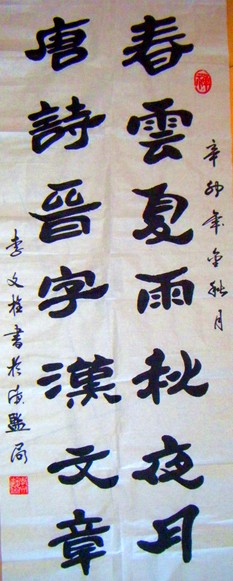 辛卯年金秋月
春雲夏雨秋夜月
唐詩晉字漢文章
李文書於局